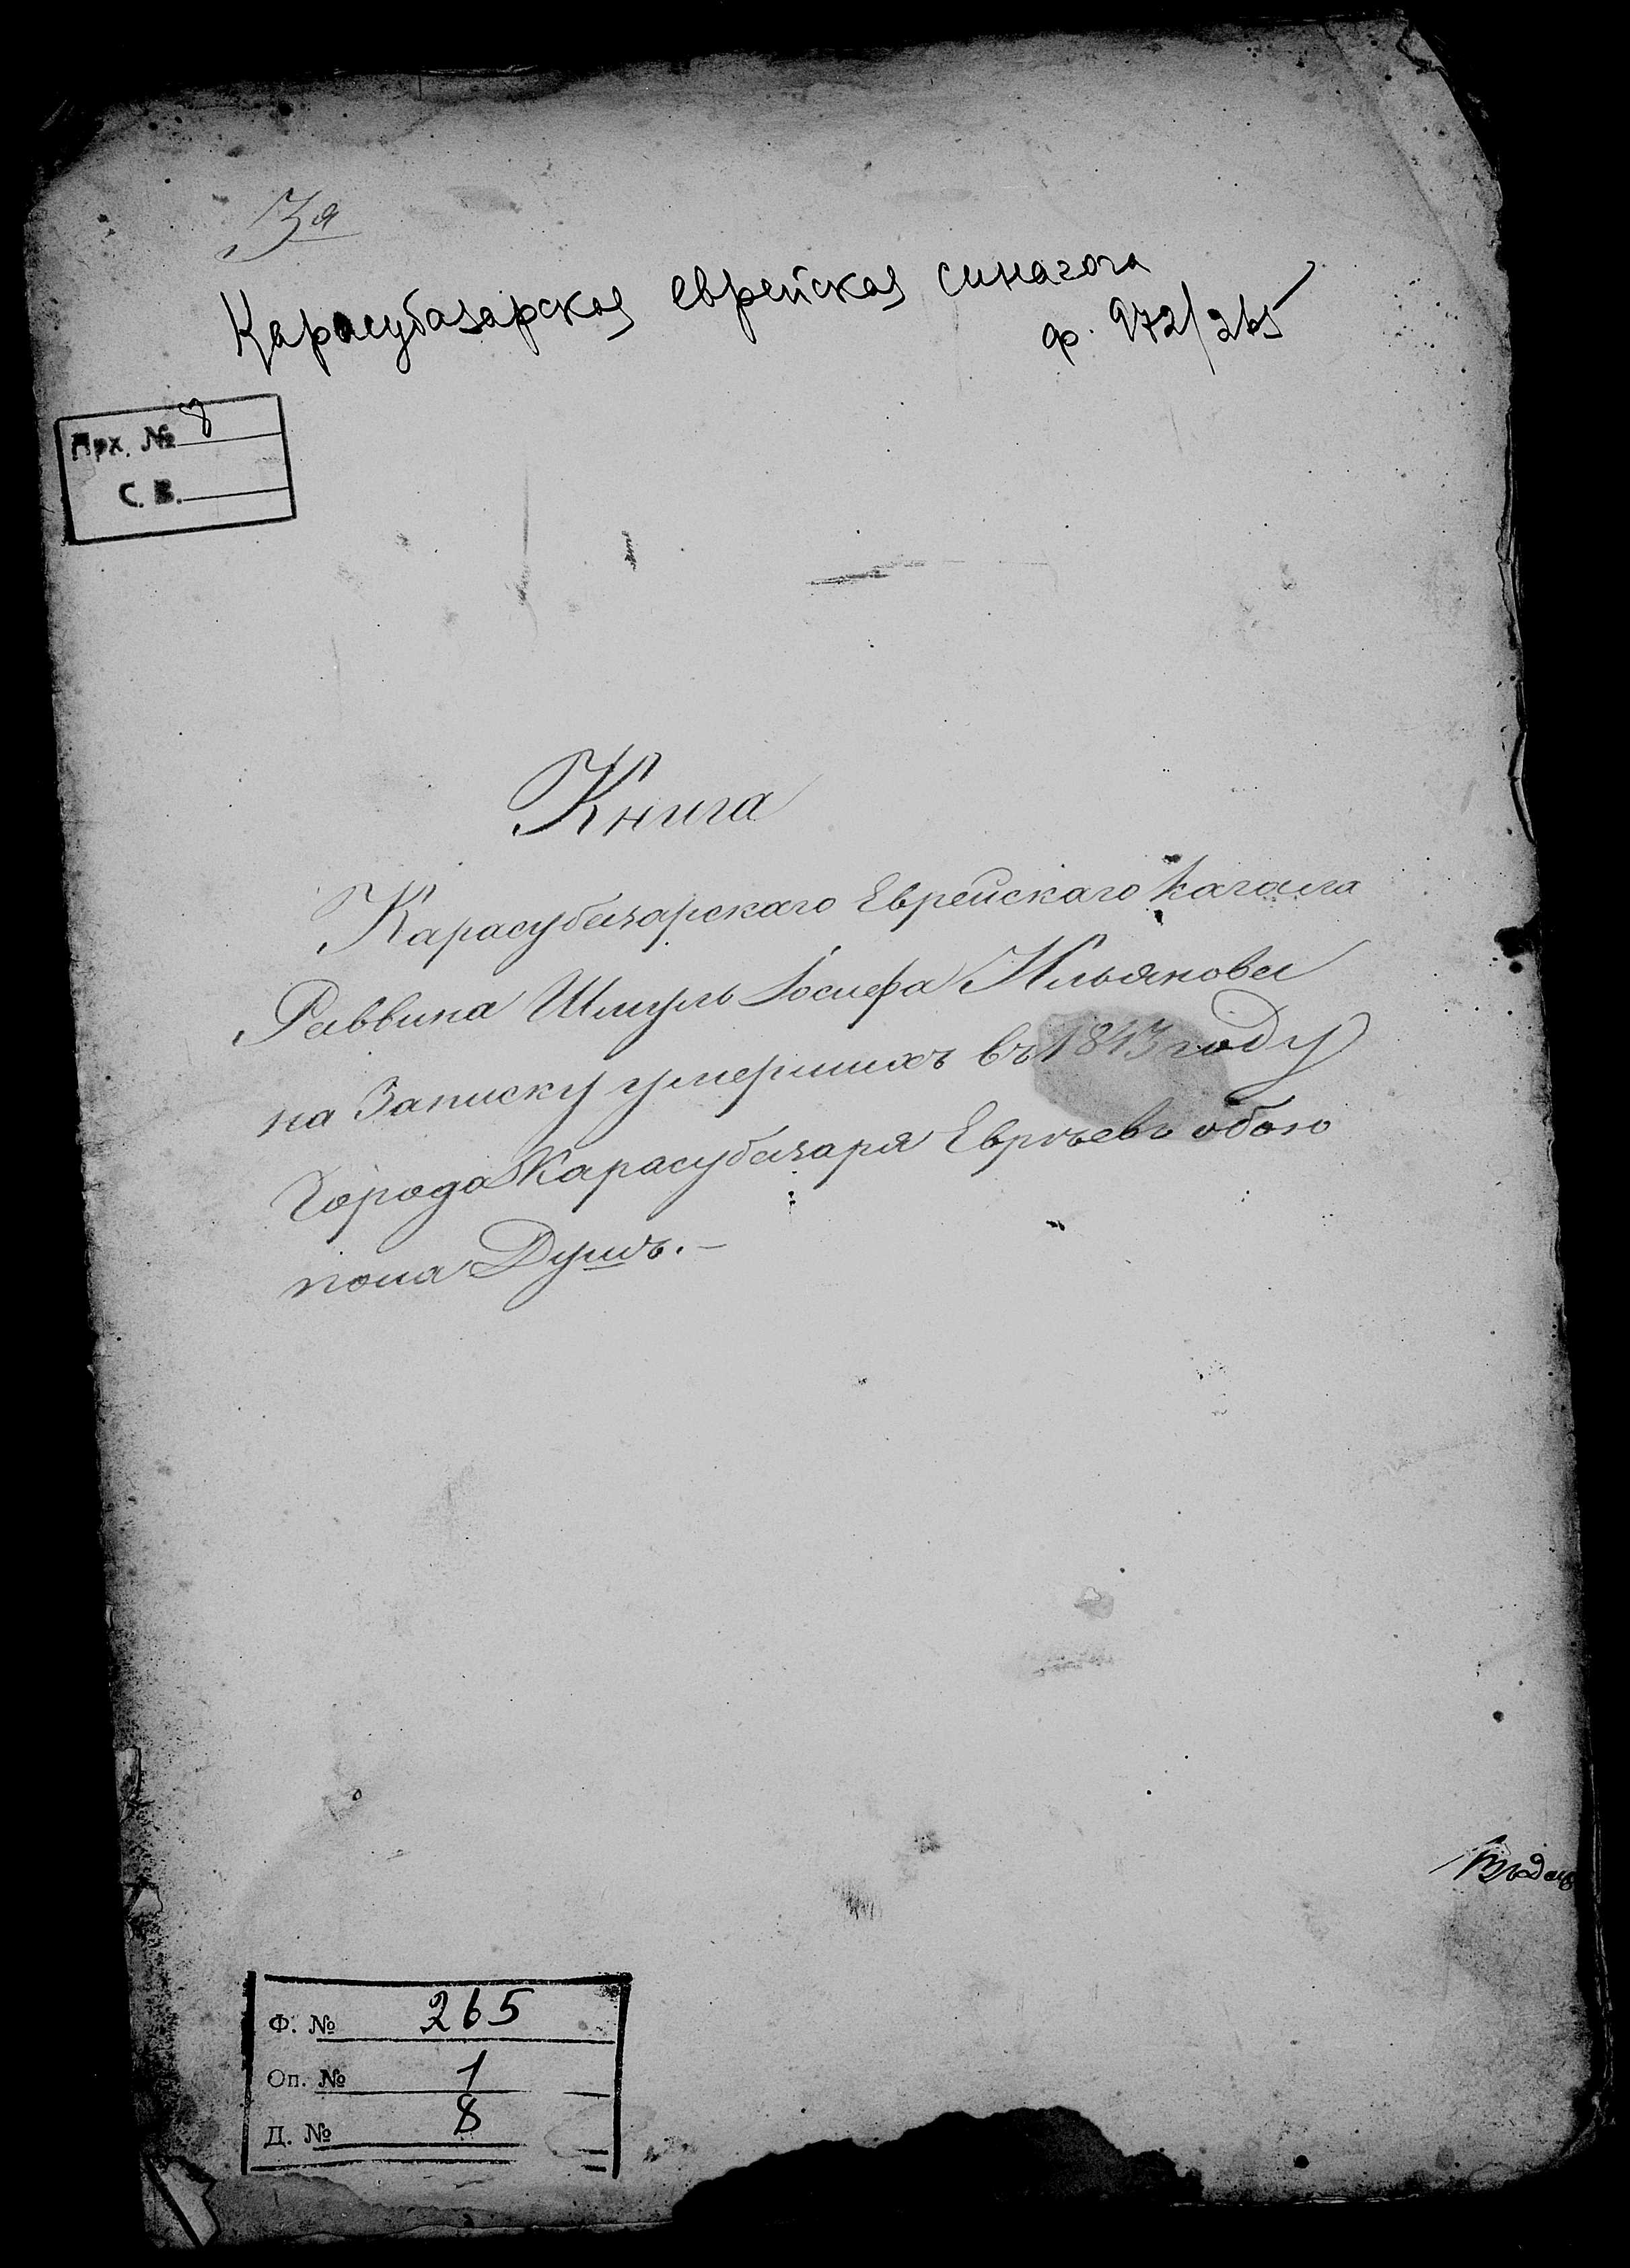 3я
Карасубазарская еврейская синагога
ф. 972/265
Арх. № 8
С. В.
Книга
Карасубазарскаго Еврейскаго Кагала
Раввина Шмуль Іосифа Ильянова
на Записку умершихъ въ 1843 году
Города Карасубазаря Евреевъ обоего
пола Душъ.-
Ф. № 265
Оп. № 1
Д. № 8